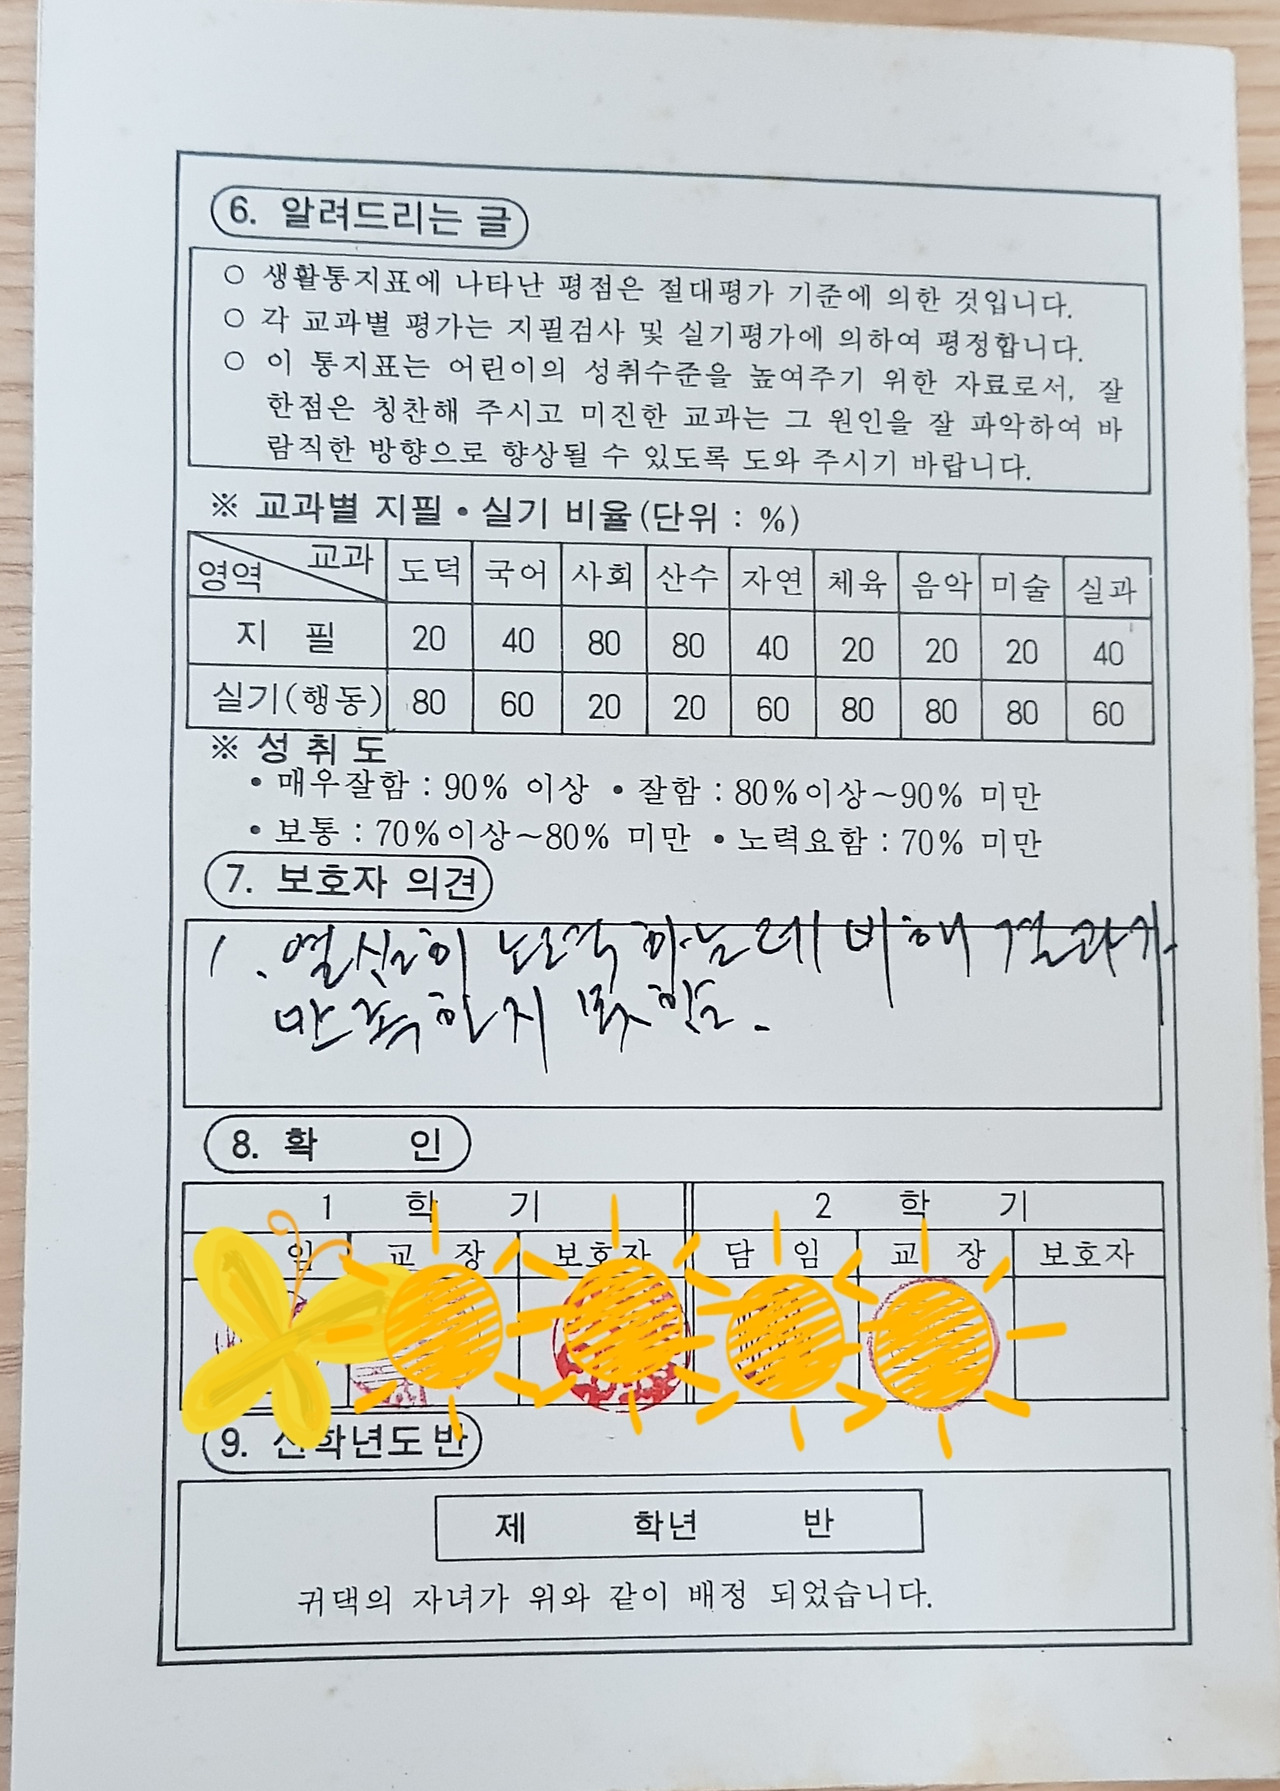 6. 알려드리는 글
○ 생활통지표에 나타난 평점은 절대평가 기준에 의한 것입니다.
○ 각 교과별 평가는 지필검사 및 실기평가에 의하여 평정합니다.
○ 이 통지표는 어린이의 성취수준을 높여주기 위한 자료로서, 잘
한점은 칭찬해 주시고 미진한 교과는 그 원인을 잘 파악하여 바
람직한 방향으로 향상될 수 있도록 도와 주시기 바랍니다.
※ 교과별 지필·실기 비율(단위 : %)
영역 교과 도덕 국어 사회 산수 자연 체육 음악 미술 실과
지 필 20 40 80 80 40 20 20 20 40
실기(행동) 80 60 20 20 60 80 80 80 60
※ 성 취 도
• 매우잘함 : 90% 이상 • 잘함 : 80%이상~90% 미만
• 보통 : 70%이상~80% 미만 • 노력요함 : 70% 미만
7. 보호자 의견
1. 열심히 노력하는데 비해 결과가
만족하지 못함.
8. 확 인
1 학 기 2 학 기
임 교 장 보호자 담 임 교 장 보호자
9. 신학년도반
제 학년 반
귀댁의 자녀가 위와 같이 배정 되었습니다.